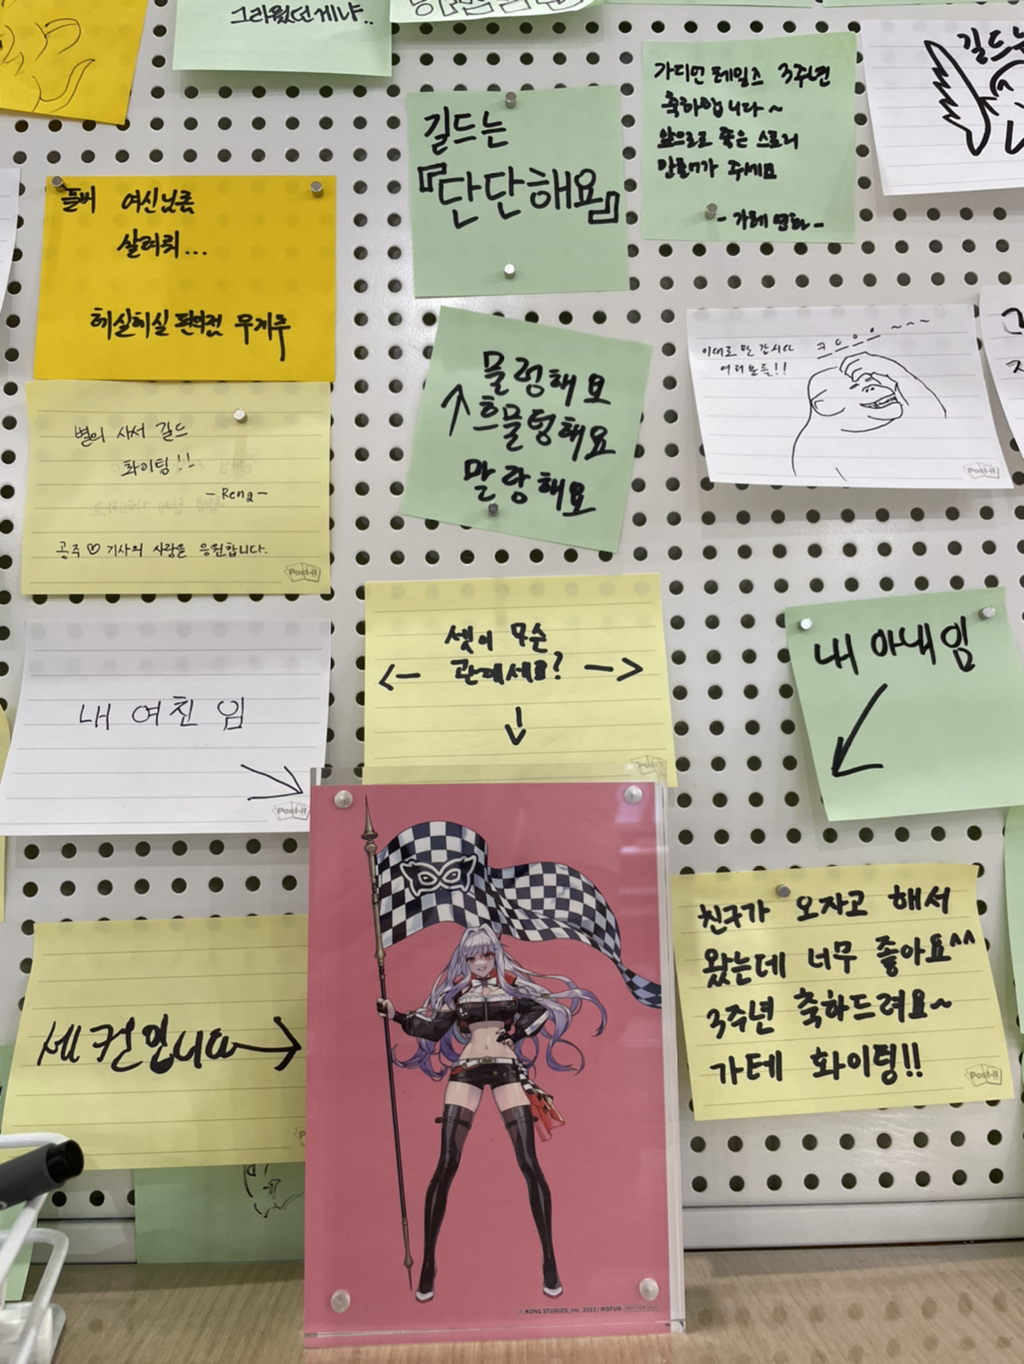 그라웠던게냐..
길드는
『단단해요』
가디언 테일즈 3주년
축하합니다~
앞으로도 좋은 스토리
만들어가 주세요
길드는
여신님좀
살려줘...
헤실헤실
물렁해요
↑흐물텅해요
말랑해요
이대로만 갑시다
여러분들!!
크으으으~~~
별의 사서 길드
화이팅!!
-Rena-
공주♡기사의 사랑을 응원합니다.
Post-it
셋이 무슨
← 관계세요? →
↓
내 여친 임
Post-it
내 아내임
친구가 오자고 해서
왔는데 너무 좋아요^^
3주년 축하드려요~
가테 화이팅!!
Post-it
세컨입니다→
© KONG STUDIOS, Inc. 2023 / MOFUN NOT FOR SALE